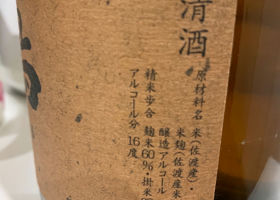 清酒
原材料名 米(佐渡産)・
米麹(佐渡産米
醸造アルコール
精米歩合 麹米60%・掛米
アルコール分 16度